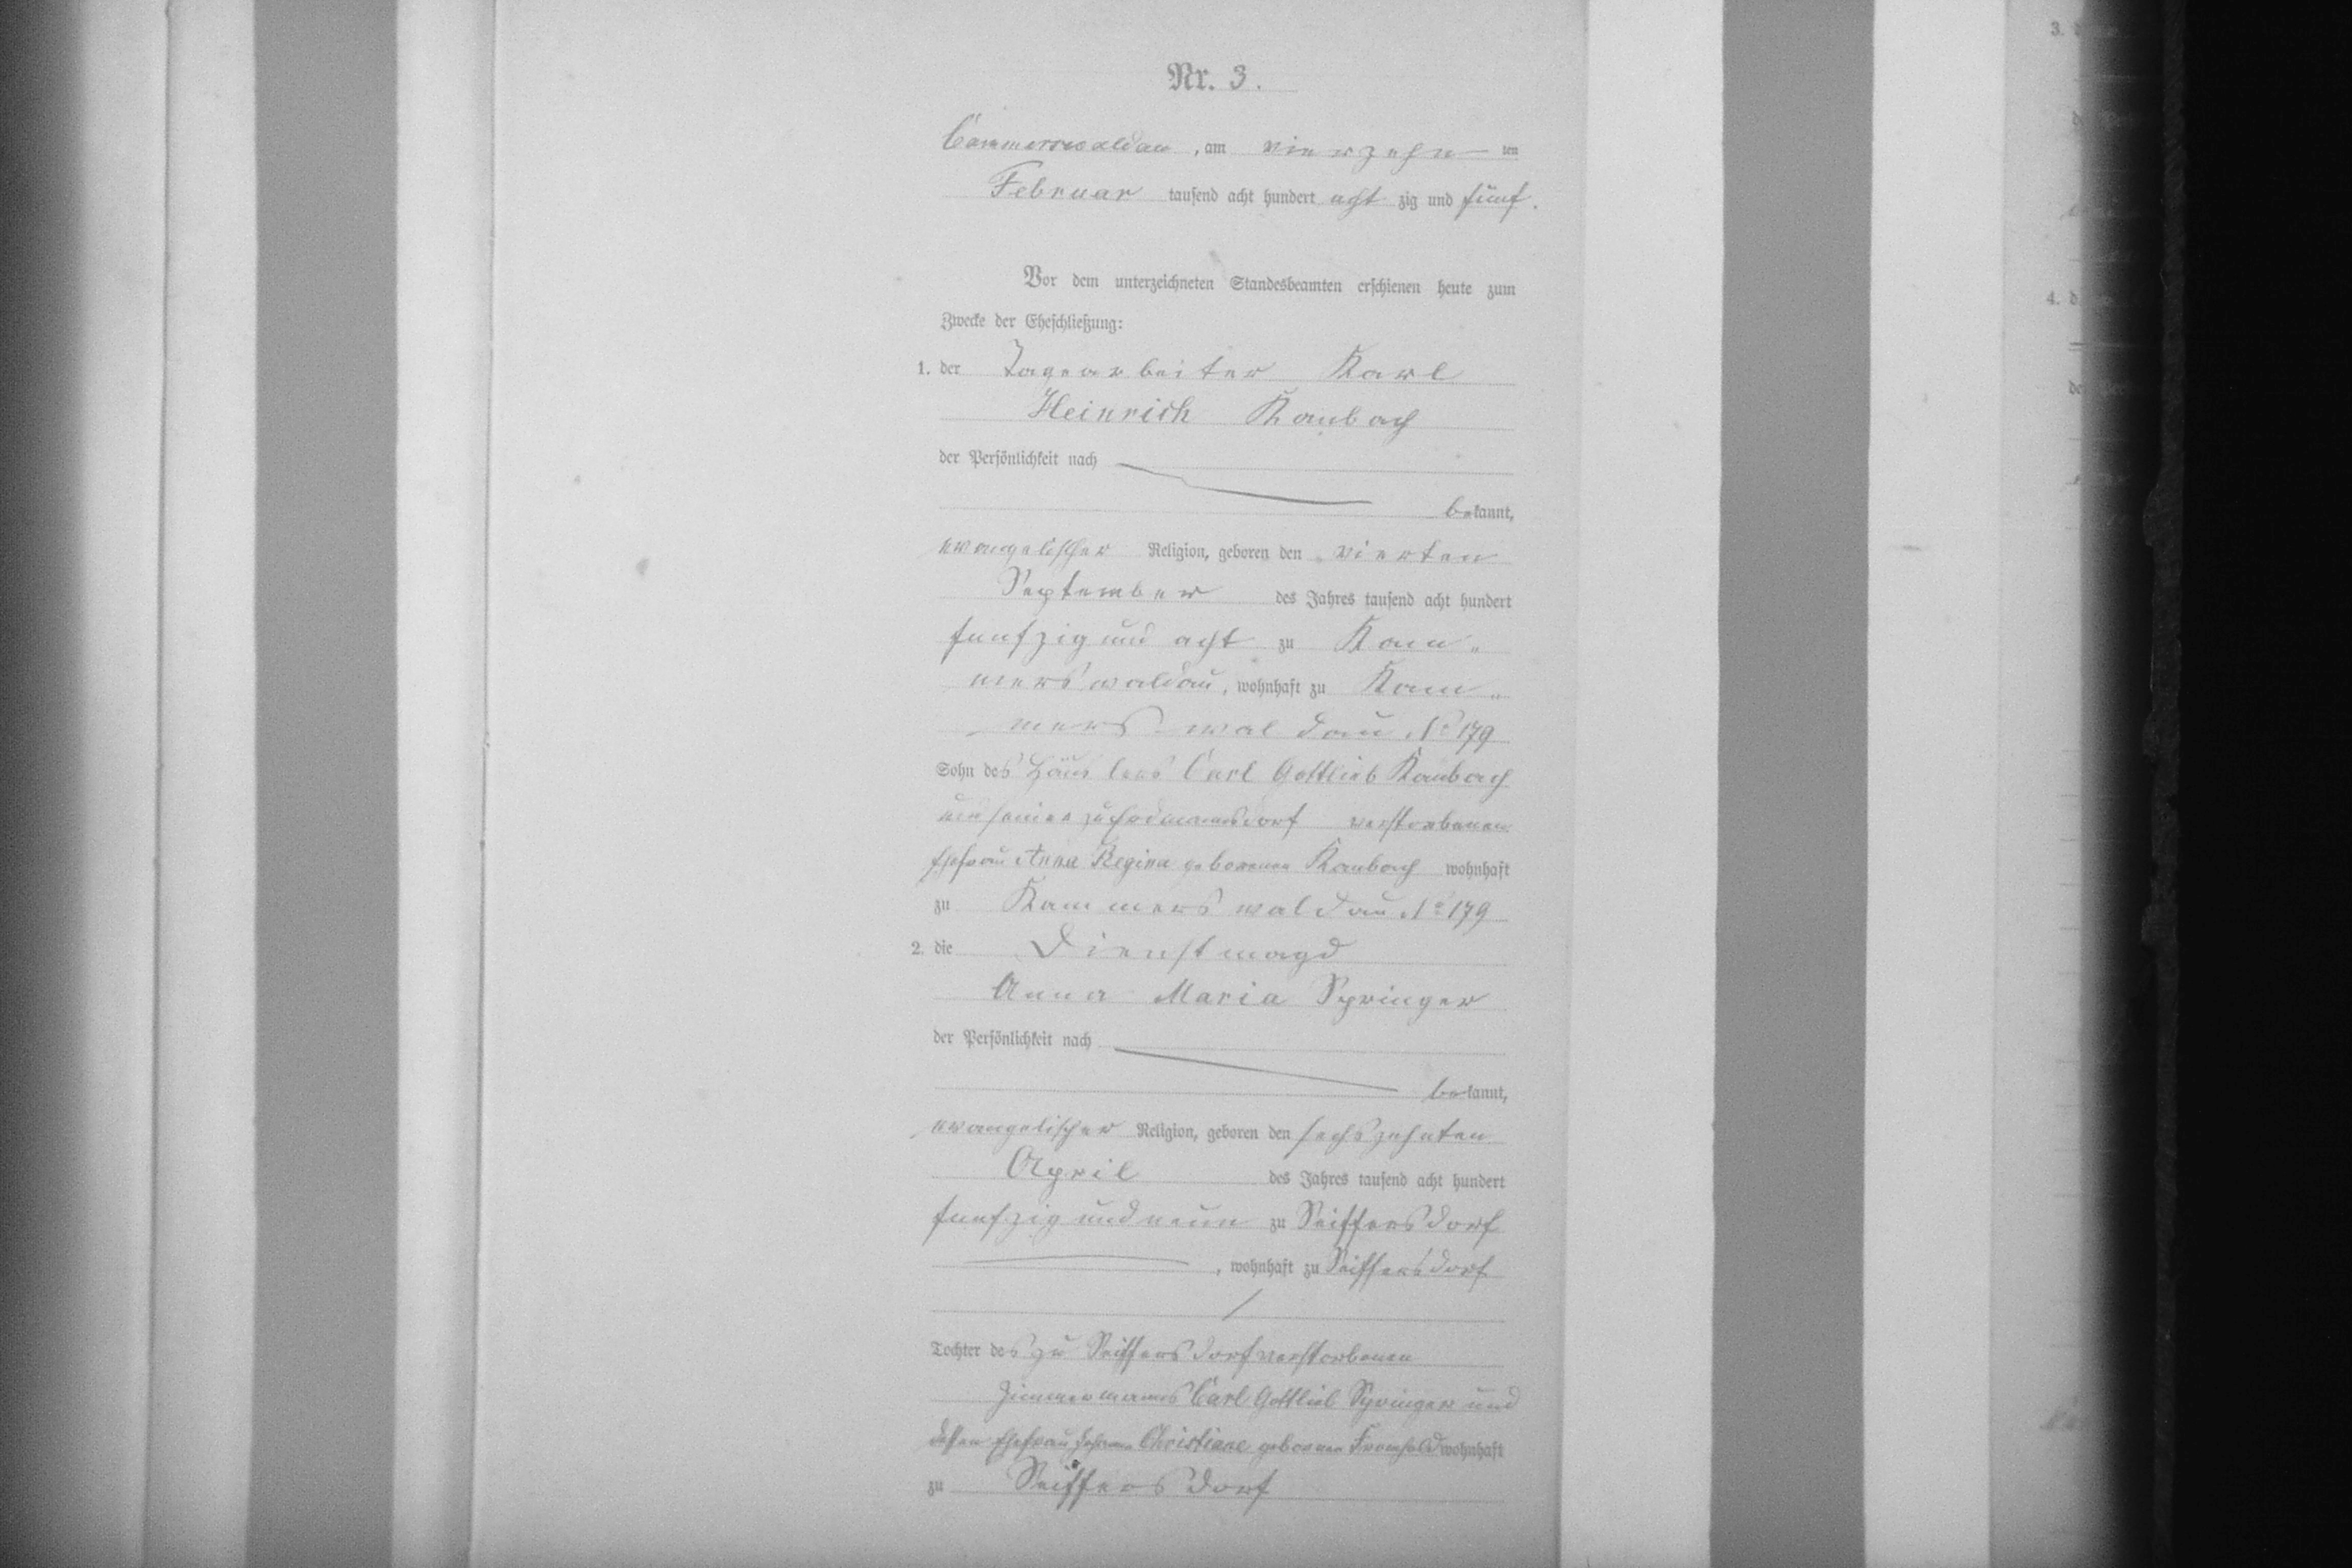 Nr. 3.
Cammerswaldau, am vierzehn ten
Februar tausend acht hundert acht zig und fünf.
Vor dem unterzeichneten Standesbeamten erschienen heute zum
Zwecke der Eheschließung:
1. der Tagearbeiter Karl
Heinrich Raubach
der Persönlichkeit nach
bekannt,
evangelischer Religion, geboren den vierten
September des Jahres tausend acht hundert
funfzig und acht zu Kam„
merswaldau, wohnhaft zu Kam„
mers-waldau No 179
Sohn des Häuslers Carl Gottlieb Raubach
und seiner zu Erdmannsdorf verstorbenen
Ehefrau Anna Regina geborenen Raubach wohnhaft
zu Kammerswaldau No 179
2. die Dienstmagd
Anna Maria Springer
der Persönlichkeit nach
bekannt,
evangelischer Religion, geboren den sechszehnten
April des Jahres tausend acht hundert
funfzig und neun zu Seiffersdorf
, wohnhaft zu Seiffersdorf
Tochter des zu Seiffersdorf verstorbenen
Zimmermanns Carl Gottlieb Springer und
dessen Ehefrau Johanne Christiane geborenen Fromhold wohnhaft
zu Seiffersdorf
3.
4.